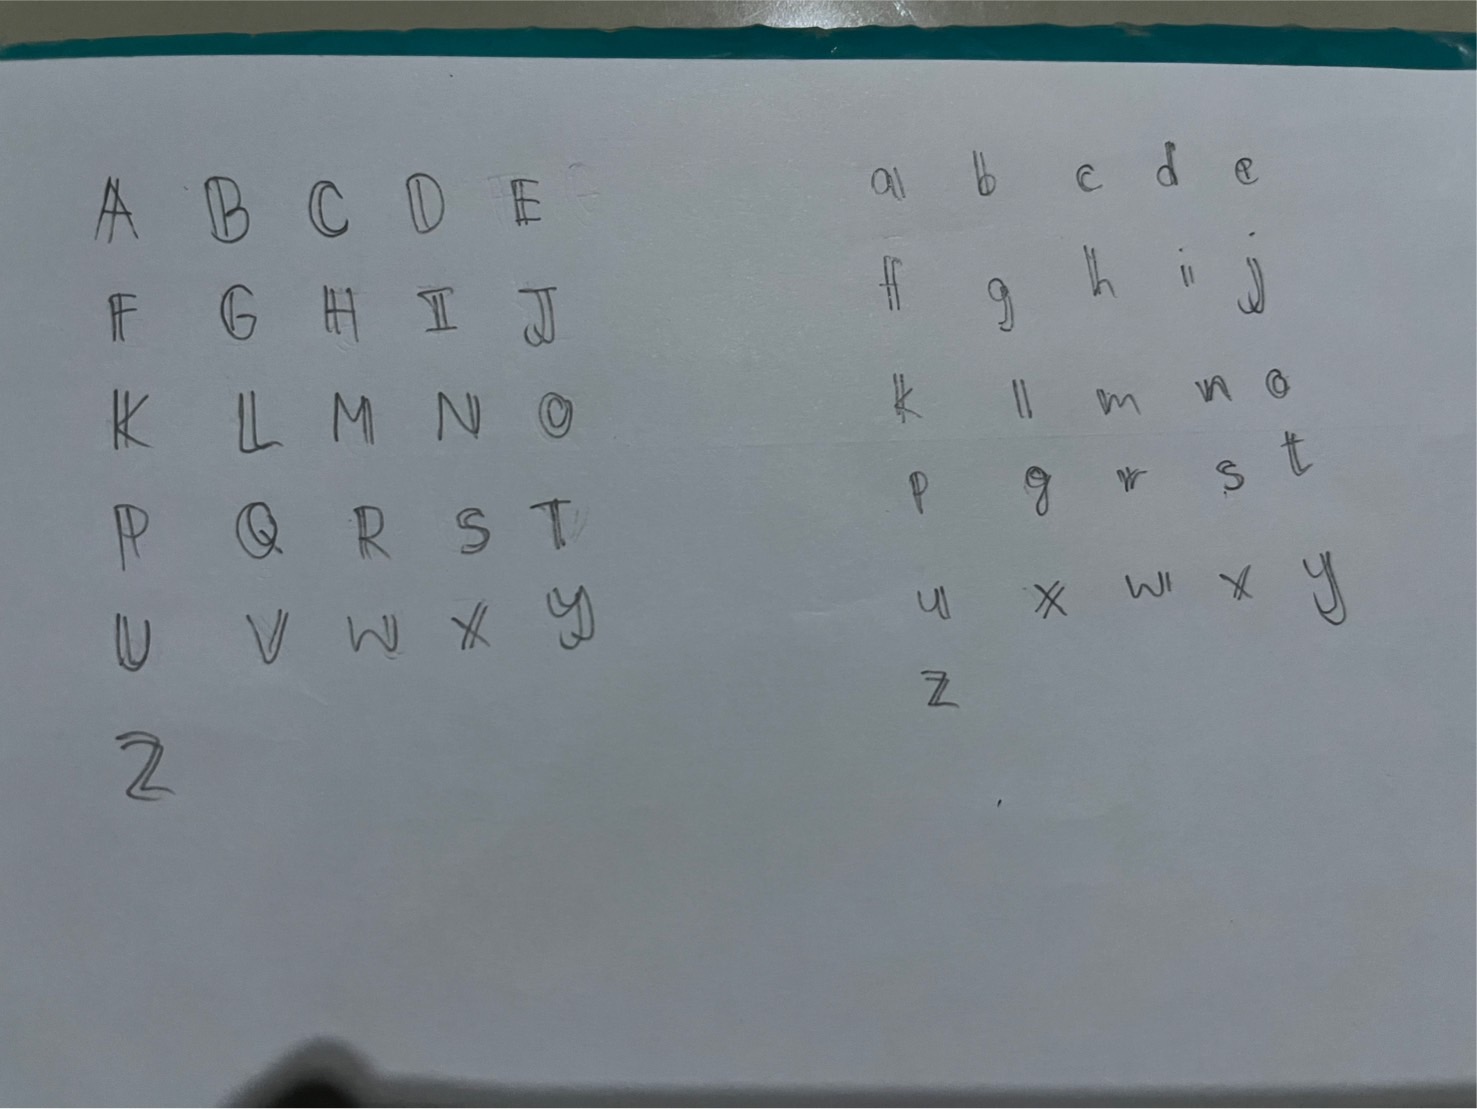 A B C D E
F G H I J
K L M N O
P Q R S T
U V W X Y
Z
a b c d e
f g h i j
k l m n o
p g r s t
u x w x y
z